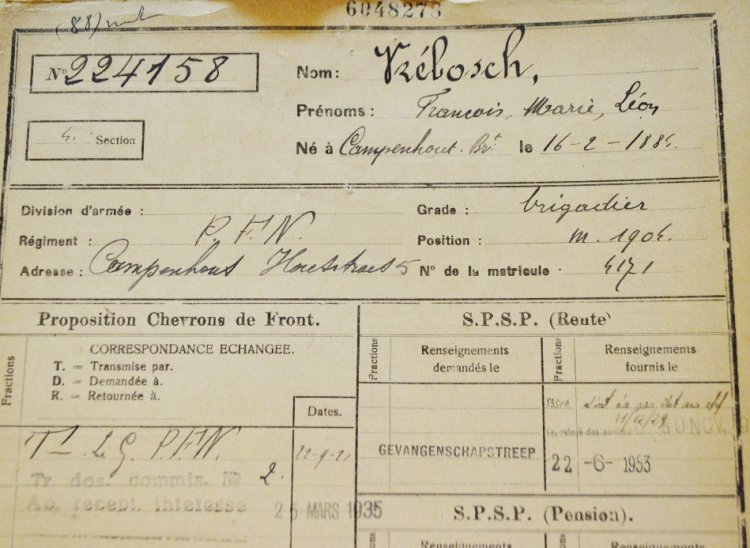 6048273
N° 224158
Nom : Kélosch,
Prénoms : François, Marie, Léon
Section
Né à Campenhout. Bt le 16-2-1884.
Division d'armée :
Grade : brigadier
Régiment : P.F.N.
Position : m. 1904.
Adresse : Campenhout 5
N° de la matricule : 4171
Proposition Chevrons de Front.
S.P.S.P. (Rente)
Fractions
CORRESPONDANCE ECHANGEE.
T. = Transmise par.
D. = Demandée à.
R. = Retournée à.
Dates.
Fractions
Renseignements demandés le
Fractions
Renseignements fournis le
T L G. P.F.N.
22-9-21
GEVANGENSCHAPSTREEP
22 -6- 1953
Tr dos. commis. No 2.
Ac. recept. interesse 25 MARS 1935
S.P.S.P. (Pension).
Renseignements
Renseignements